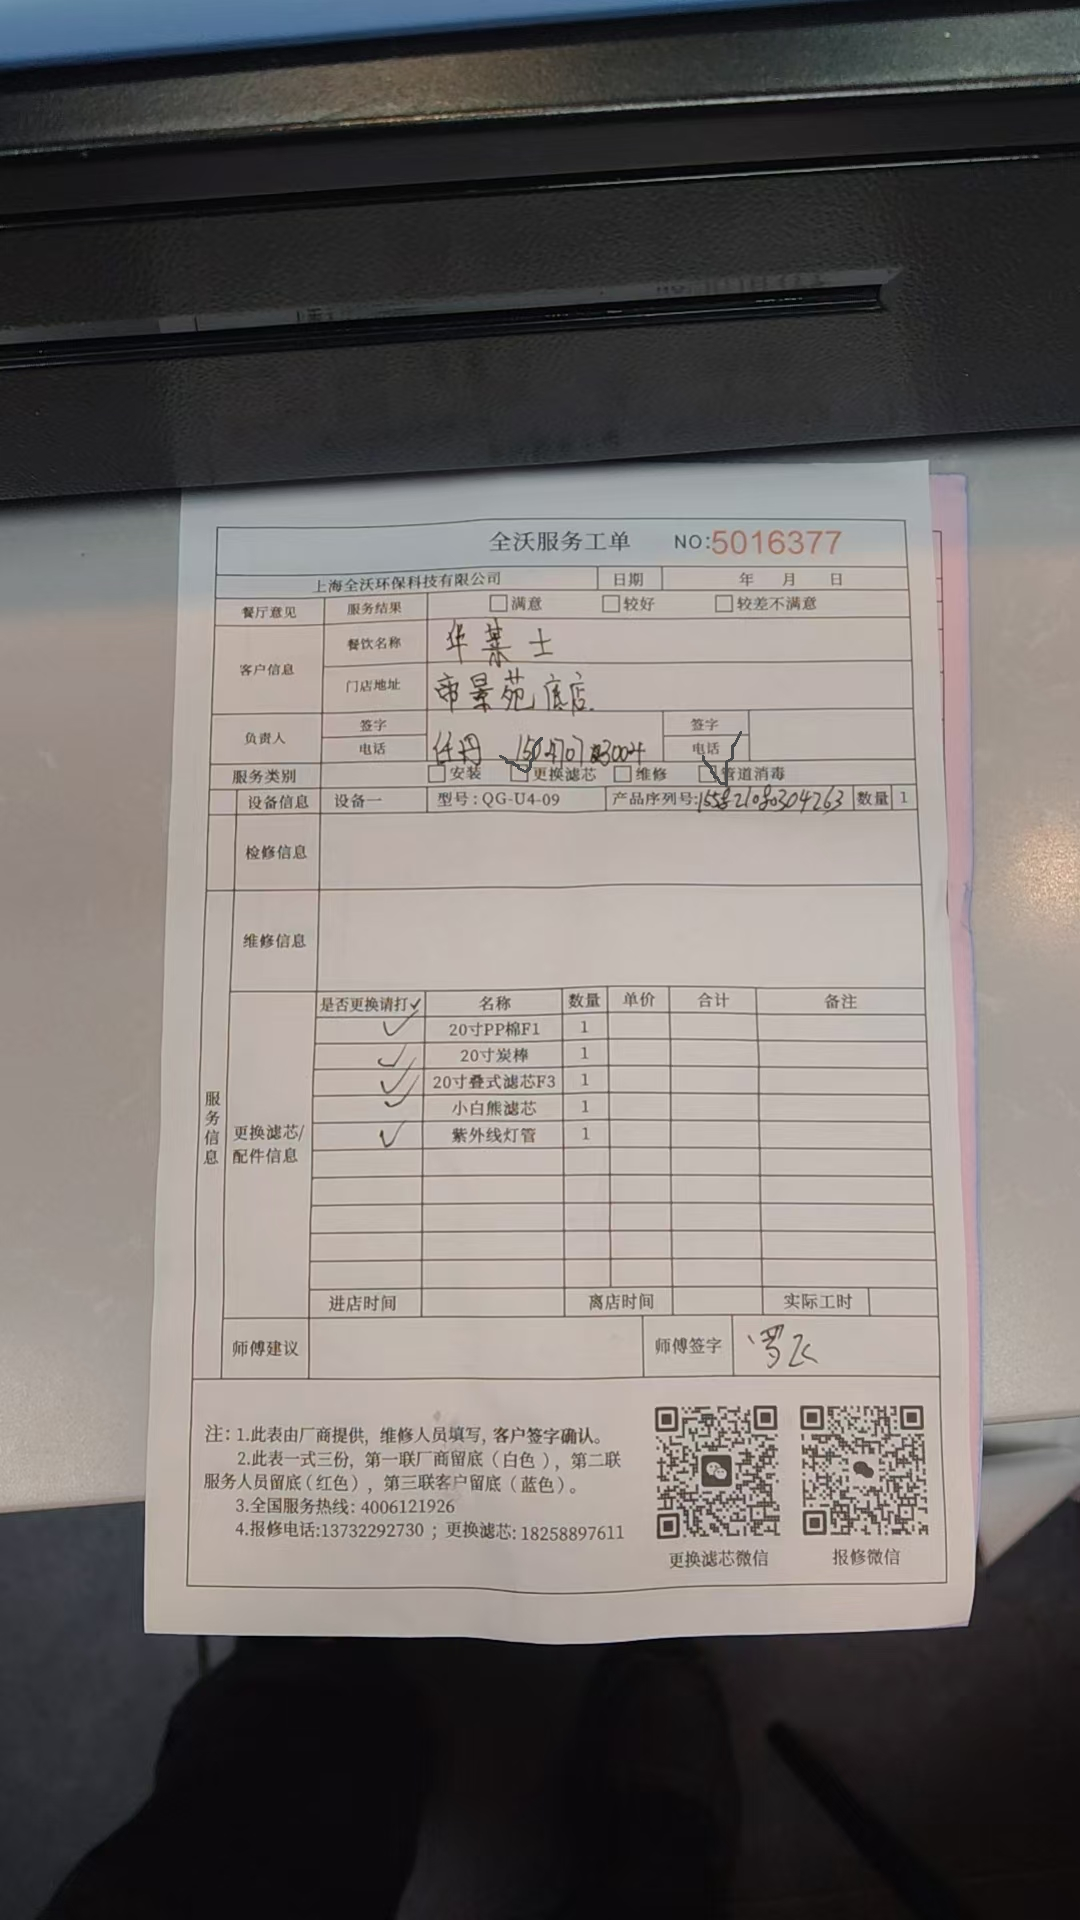 全沃服务工单 NO:5016377
上海全沃环保科技有限公司 日期 年 月 日
餐厅意见 服务结果 满意 较好 较差不满意
客户信息 餐饮名称 华莱士
门店地址 帝景苑底店
负责人 签字 签字
电话 任丹 电话
服务类别 安装 更换滤芯 维修 管道消毒
设备信息 设备一 型号:QG-U4-09 产品序列号: 数量 1
检修信息
维修信息
服务信息
更换滤芯/配件信息
是否更换请打✓ 名称 数量 单价 合计 备注
✓ 20寸PP棉F1 1
✓ 20寸炭棒 1
✓ 20寸叠式滤芯F3 1
✓ 小白熊滤芯 1
✓ 紫外线灯管 1
进店时间 离店时间 实际工时
师傅建议 师傅签字 罗飞
注: 1.此表由厂商提供, 维修人员填写, 客户签字确认。
2.此表一式三份, 第一联厂商留底(白色), 第二联
服务人员留底(红色), 第三联客户留底(蓝色)。
3.全国服务热线: 4006121926
4.报修电话:13732292730 ; 更换滤芯: 18258897611
更换滤芯微信 报修微信